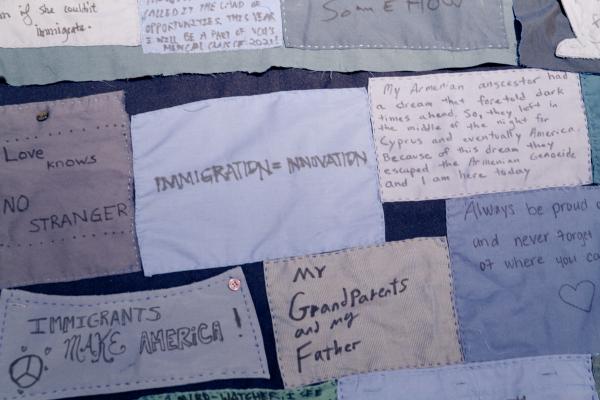 n if she couldn't
immigrate.
CALLED IT THE LAND OF
OPPORTUNITIES. THIS YEAR
I WILL BE A PART OF
MEDICAL CLASS OF 2021!
SOMEHOW
Love knows
NO
STRANGER
IMMIGRATION = INNOVATION
My Armenian anscestor had
a dream that foretold dark
times ahead. So, they left in
the middle of the night for
Cyprus and eventually America.
Because of this dream they
escaped the Armenian Genocide
and I am here today
Always be proud o
and never forget
of where you ca
IMMIGRANTS
MAKE AMERICA!
MY
GrandParents
and my
Father
A BIRD-WATCHER. I SEE